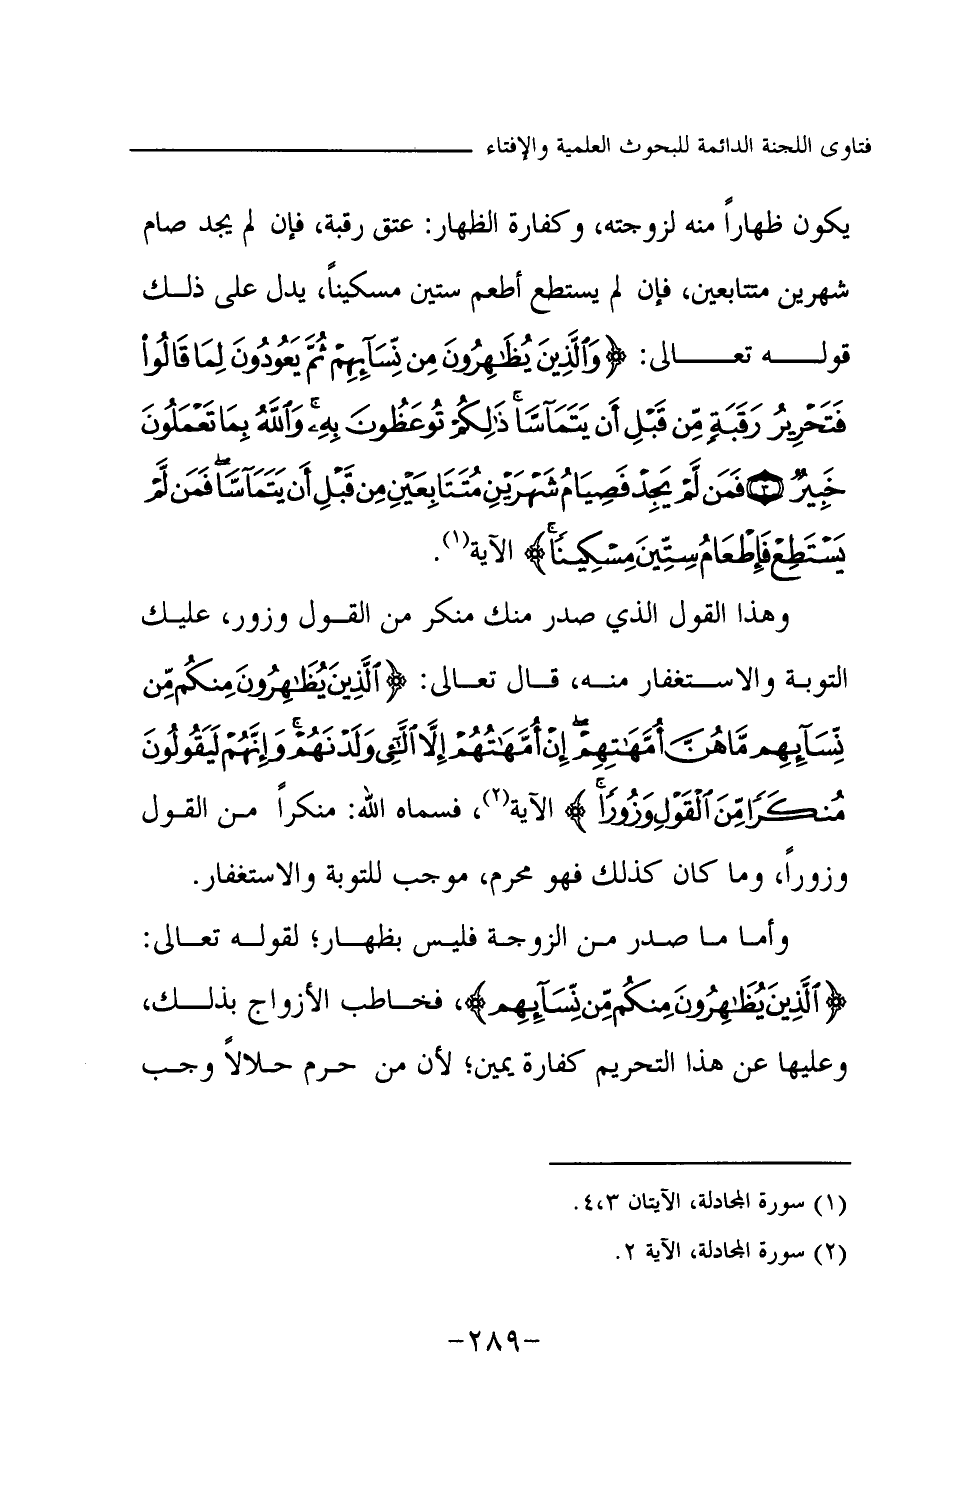 فتاوى اللجنة الدائمة للبحوث العلمية والإفتاء
يكون ظهاراً منه لزوجته، وكفارة الظهار: عتق رقبة، فإن لم يجد صام
شهرين متتابعين، فإن لم يستطع أطعم ستين مسكيناً، يدل على ذلك
قوله تعالى: ﴿وَٱلَّذِينَ يُظَٰهِرُونَ مِن نِّسَآئِهِمْ ثُمَّ يَعُودُونَ لِمَا قَالُوا۟
فَتَحْرِيرُ رَقَبَةٍ مِّن قَبْلِ أَن يَتَمَآسَّا ۚ ذَٰلِكُمْ تُوعَظُونَ بِهِۦ ۚ وَٱللَّهُ بِمَا تَعْمَلُونَ
خَبِيرٌ ﴿٣﴾ فَمَن لَّمْ يَجِدْ فَصِيَامُ شَهْرَيْنِ مُتَتَابِعَيْنِ مِن قَبْلِ أَن يَتَمَآسَّا ۖ فَمَن لَّمْ
يَسْتَطِعْ فَإِطْعَامُ سِتِّينَ مِسْكِينًا ۚ﴾ الآية(١).
وهذا القول الذي صدر منك منكر من القول وزور، عليك
التوبة والاستغفار منه، قال تعالى: ﴿ٱلَّذِينَ يُظَٰهِرُونَ مِنكُم مِّن
نِّسَآئِهِم مَّا هُنَّ أُمَّهَٰتِهِمْ ۖ إِنْ أُمَّهَٰتُهُمْ إِلَّا ٱلَّٰٓـِٔى وَلَدْنَهُمْ ۚ وَإِنَّهُمْ لَيَقُولُونَ
مُنكَرًا مِّنَ ٱلْقَوْلِ وَزُورًا ۚ﴾ الآية(٢)، فسماه الله: منكراً من القول
وزوراً، وما كان كذلك فهو محرم، موجب للتوبة والاستغفار.
وأما ما صدر من الزوجة فليس بظهار؛ لقوله تعالى:
﴿ٱلَّذِينَ يُظَٰهِرُونَ مِنكُم مِّن نِّسَآئِهِم﴾، فخاطب الأزواج بذلك،
وعليها عن هذا التحريم كفارة يمين؛ لأن من حرم حلالاً وجب
(١) سورة المجادلة، الآيتان ٣،٤.
(٢) سورة المجادلة، الآية ٢.
-٢٨٩-